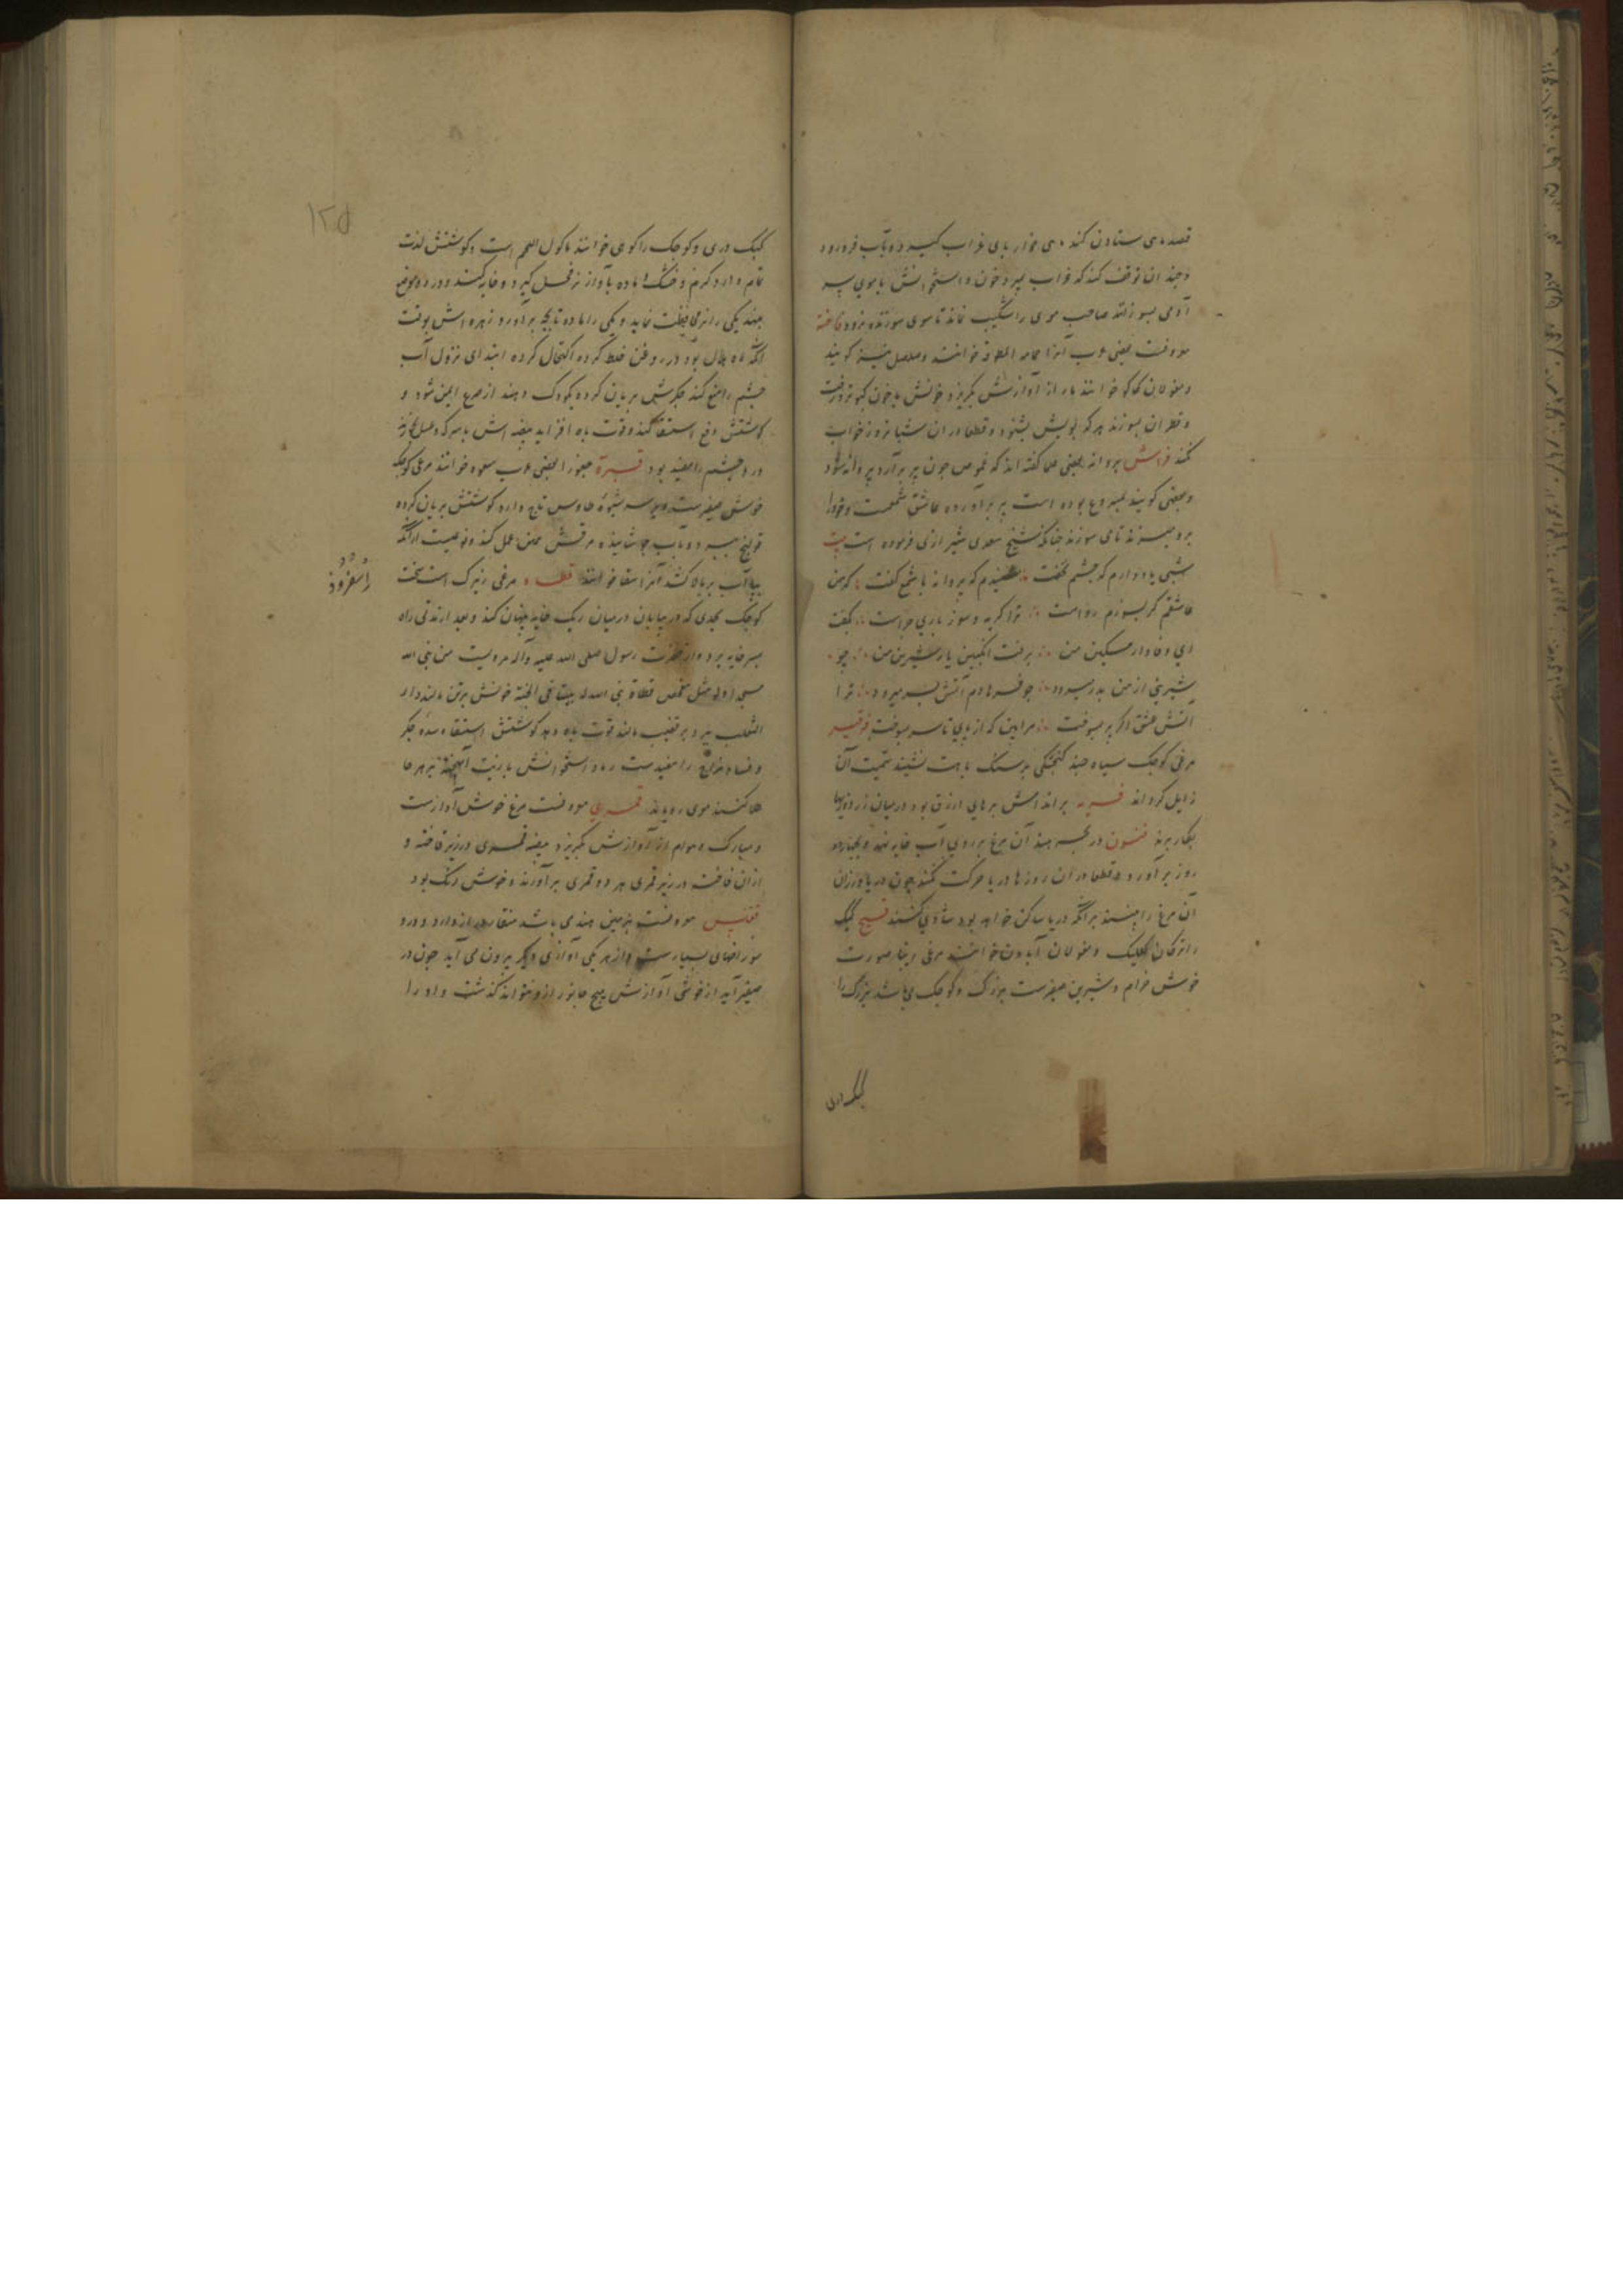 قصد ماهی ستادن کند ماهی خوار پای غراب گیرد و بآب فرورود
و چندان توقف کند که غراب بمیرد خون و استخوانش با موی سر
آدمی بسوزانند صاحب موی را شکیب نماند تا موی سوزنده نرود فاخته
معروفست بعضی عرب آنرا حمامه المطوقه خوانند و صلصل نیز گویند
و مغولان کوکو خوانند مار از آوازش بگریزد خونش با خون کبوتر و زفت
و قطران بسوزند هر که بویش بشنود و قطعا در آن شبانروز خواب
نکند فراش پروانه بعضی علما گفته اند که دعموص چون پر برآرد پروانه شود
و بعضی گویند یسروع بوده است پر برآورده عاشق شمعست و خود را
برو میزند تا می سوزند چنانکه شیخ سعدی شیرازی فرموده است بیت
شبی یاد دارم که چشمم نخفت شنیدم که پروانه با شمع گفت که من
عاشقم گر بسوزم رواست ترا گریه و سوز باری چراست بگفت
ای وفادار مسکین من برفت انگبین یار شیرین من چو
شیرینی از من بدر میرود چو فرهادم آتش بسر میرود ترا
آتش عشق اگر پر بسوخت مرا بین که از پای تا سر بسوخت
مرغی کوچک سیاه چند گنجشکی بر سنگ باهت نشیند سمیت آن
زایل گرداند بر اندامش پرهای ازرق بود و درمیان زر و زیورها
بکار برند در بحر هند آن مرغ بر روی آب خایه نهد و بچهارده
روز برآورد و قطعا در آن روزها دریا حرکت نکند چون دریاورزان
آن مرغ را بینند بر آنکه دریا ساکن خواهد بود شادی کنند قبج کبک
را ترکان ککلیک و مغولان خوانند مرغی زیبا صورت
خوش خرام و شیرین صفیرست بزرگ و کوچک می باشد بزرگ را
کبک دری
۱۲۵
کبک دری و کوچک را کوهی خوانند ماکول اللحم است و گوشتش لذت
تمام دارد گرم و خشک و ماده بآواز نر فحل گیرد و خایه کند و در دو موضع
بنهد یکی را نر محافظت نماید و یکی را ماده تا بچه برآورد زهره اش بوقت
آنکه ماه هلال بود در روغن خلط کرده اکتحال کرده ابتدای نزول آب
چشم را منع کند جگرش بریان کرده بکودک دهند از صرع ایمن شود و
گوشتش دفع استسقا کند و قوت باه افزاید بیضه اش با سرکه و عسل
درد چشم را مفید بود قبره بعضی عرب خوانند مرغی کوچک
خوش صفیرست و بر سر بشیوه طاوس تاج دارد گوشتش بریان کرده
قولنج ببرد و بآب چون شانیده مرقش همین عمل کند و خاصیت آنکه
آب بر بالا کشد آنرا استقا خوانند قطاه مرغی زیرک است سخت
کوچک بحدی که در بیابان درمیان ریگ خایه پنهان کند و بعد از مدتی راه
بسر خایه برد و از حضرت رسول صلی الله علیه و آله مرویست من بنی لله
مسجدا ولو مثل مفحص قطاة بنی الله له بیتا فی الجنة خونش بر تن مالند داء
الثعلب ببرد و بر قضیب مالند قوت باه دهد گوشتش استسقاء سده جگر
و فساد مزاج را مفیدست رماد استخوانش با زیت آمیخته بر هر جا
طلا کنند موی رویاند قمری معروفست مرغ خوش آوازست
و مبارک و هوام از آوازش بگریزد بیضه قمری در زیر فاخته و
از آن فاخته در زیر قمری هر دو قمری برآورند و خوش رنگ بود
ققنس معروفست بزمین هند می باشد منقار دراز دارد و درو
سوراخهای بسیارست و از هر یکی آوازی دیگر بیرون می آید چون در
صفیر آید از خوشی آوازش هیچ جانور ازو نتواند گذشت و او را
اسفرود